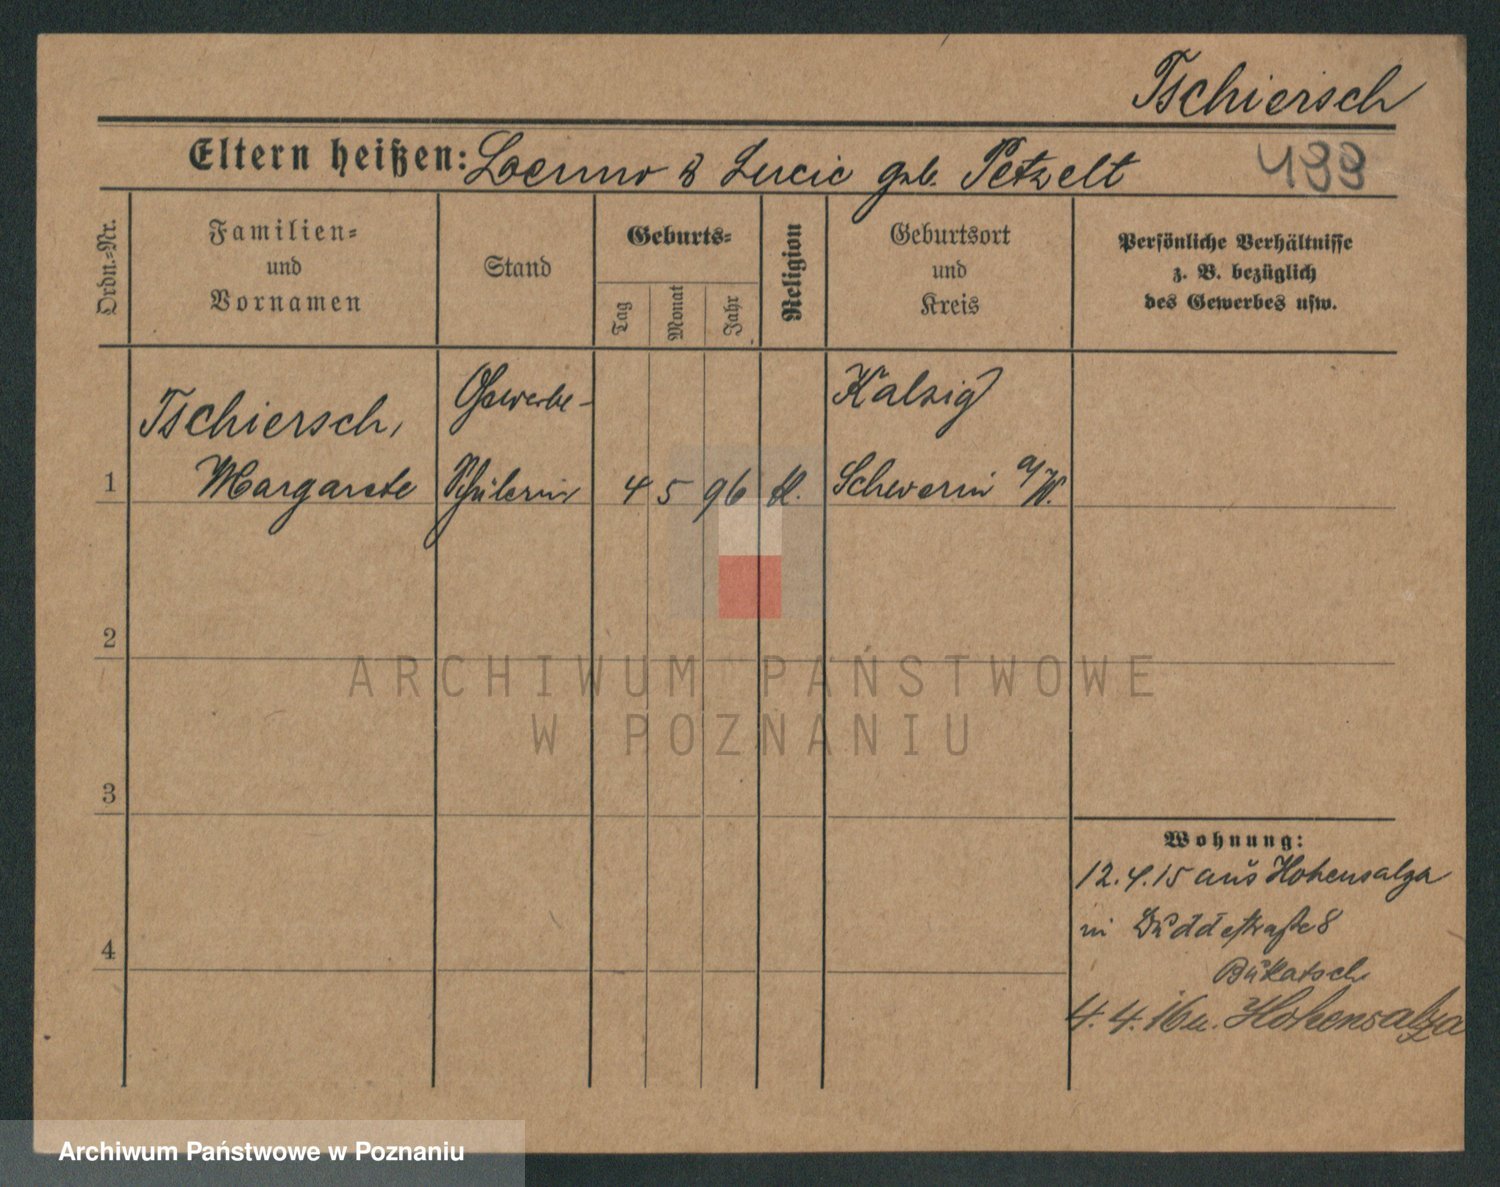 Tschiersch
Eltern heißen: Benno & Lucie geb. Petzelt
499
Ordn.-Nr.
Familien-
und
Vornamen
Stand
Geburts-
Tag
Monat
Jahr
Religion
Geburtsort
und
Kreis
Persönliche Verhältnisse
z. B. bezüglich
des Gewerbes usw.
1
Tschiersch,
Margarete
Gewerbe-
Schülerin
4 5 96
Kalzig
Schwerin a/W.
2
3
4
Wohnung:
12.4.15 aus Hohensalza
in Buddestraße 8
Bukatsch
4.4.16 n. Hohensalza
ARCHIWUM PAŃSTWOWE
W POZNANIU
Archiwum Państwowe w Poznaniu